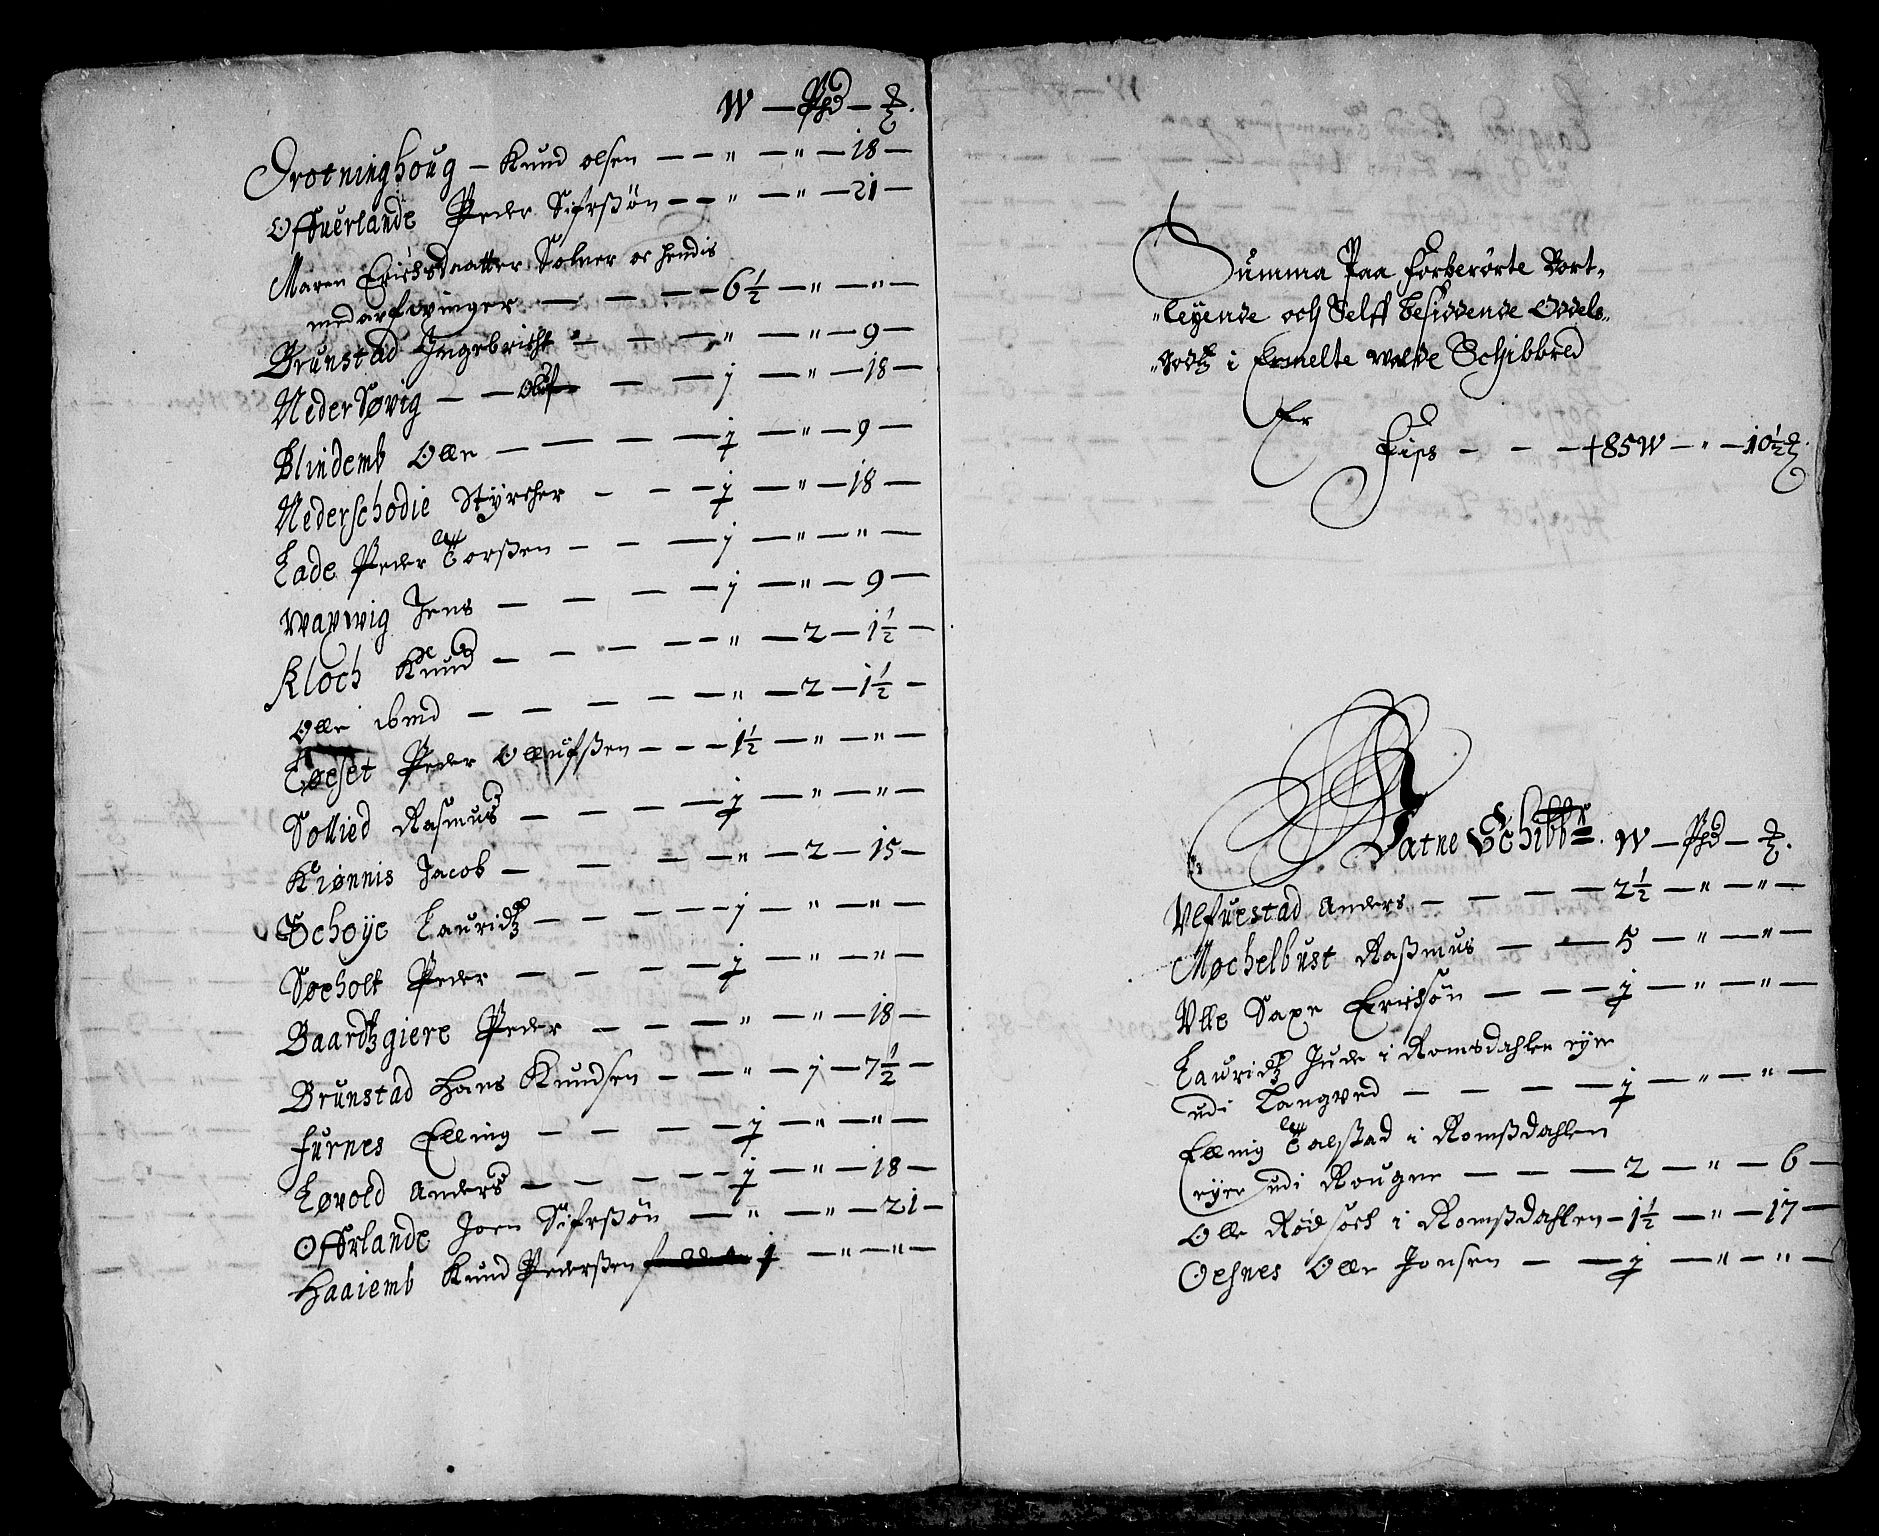 W — Pd — ℔.
Drotninghoug — Knud olsen — — " — " — 18 —
Offuerlande Peder Sifrßøn — — " — " — 21 —
Maren Erichsdaatter Solner oc hendis
medarfvinger — — — 6½ — " — " —
Brunstad Ingebricht — — — " — " — 9 —
Neder Søvig — — Oluf — — j — " — 18 —
Blindemb Olle — — — j — " — 9 —
Nederschodie Styrcher — — — j — " — 18 —
Lade Peder Torßen — — — j — " — " —
Wavwig Jens — — — — j — " — 9 —
Kloch Knud — — — — — " — 2 — 1½ —
Olle ibmd — — — — — " — 2 — 1½ —
Løeset Peder Ollufßen — — — 1½ — " — " —
Sollied Rasmus — — — — j — " — " —
Kiønnis Jacob — — — — " — 2 — 15 —
Schoye Lauridtz — — — — — j — " — " —
Søeholt Peder — — — — j — " — " —
Baardtzgiere Peder — — — " — " — 18 —
Brunstad Hans Knudsen — — " — j — 7½ —
Furnes Elling — — — — j — " — " —
Løvold Anders — — — — — j — " — 18 —
Offrlande Joen Sifrßøn — " — " — 21 —
Haaiemb Knud Pederßen j — " — " —
Summa Paa forberørte Bort-
"leyende och Selff besiddende Oddels-
"Godtz i Ermelte Schibbred
Er
Fisk — — — +85W — " — 10½ ℔.
Vatne Schibbr. W — Pd — ℔.
Vlfuestad Anders — — — — 2½ — " — " —
Møchelbust Raßmus — — 5 — " — " —
Vlle Saxe Erichsøn — — — j — " — " —
Lauridtz Jude i Romsdahlen eyer
udi Langved — — — — j — " — " —
Elling Talßad i Romßdahlen
eyer udi Rougne — — — 2 — " — 6 —
Olle Rødsoch i Romßdahlen — 1½ — " — 17 —
Oesnes Olle Jonsen — — j — " — " —